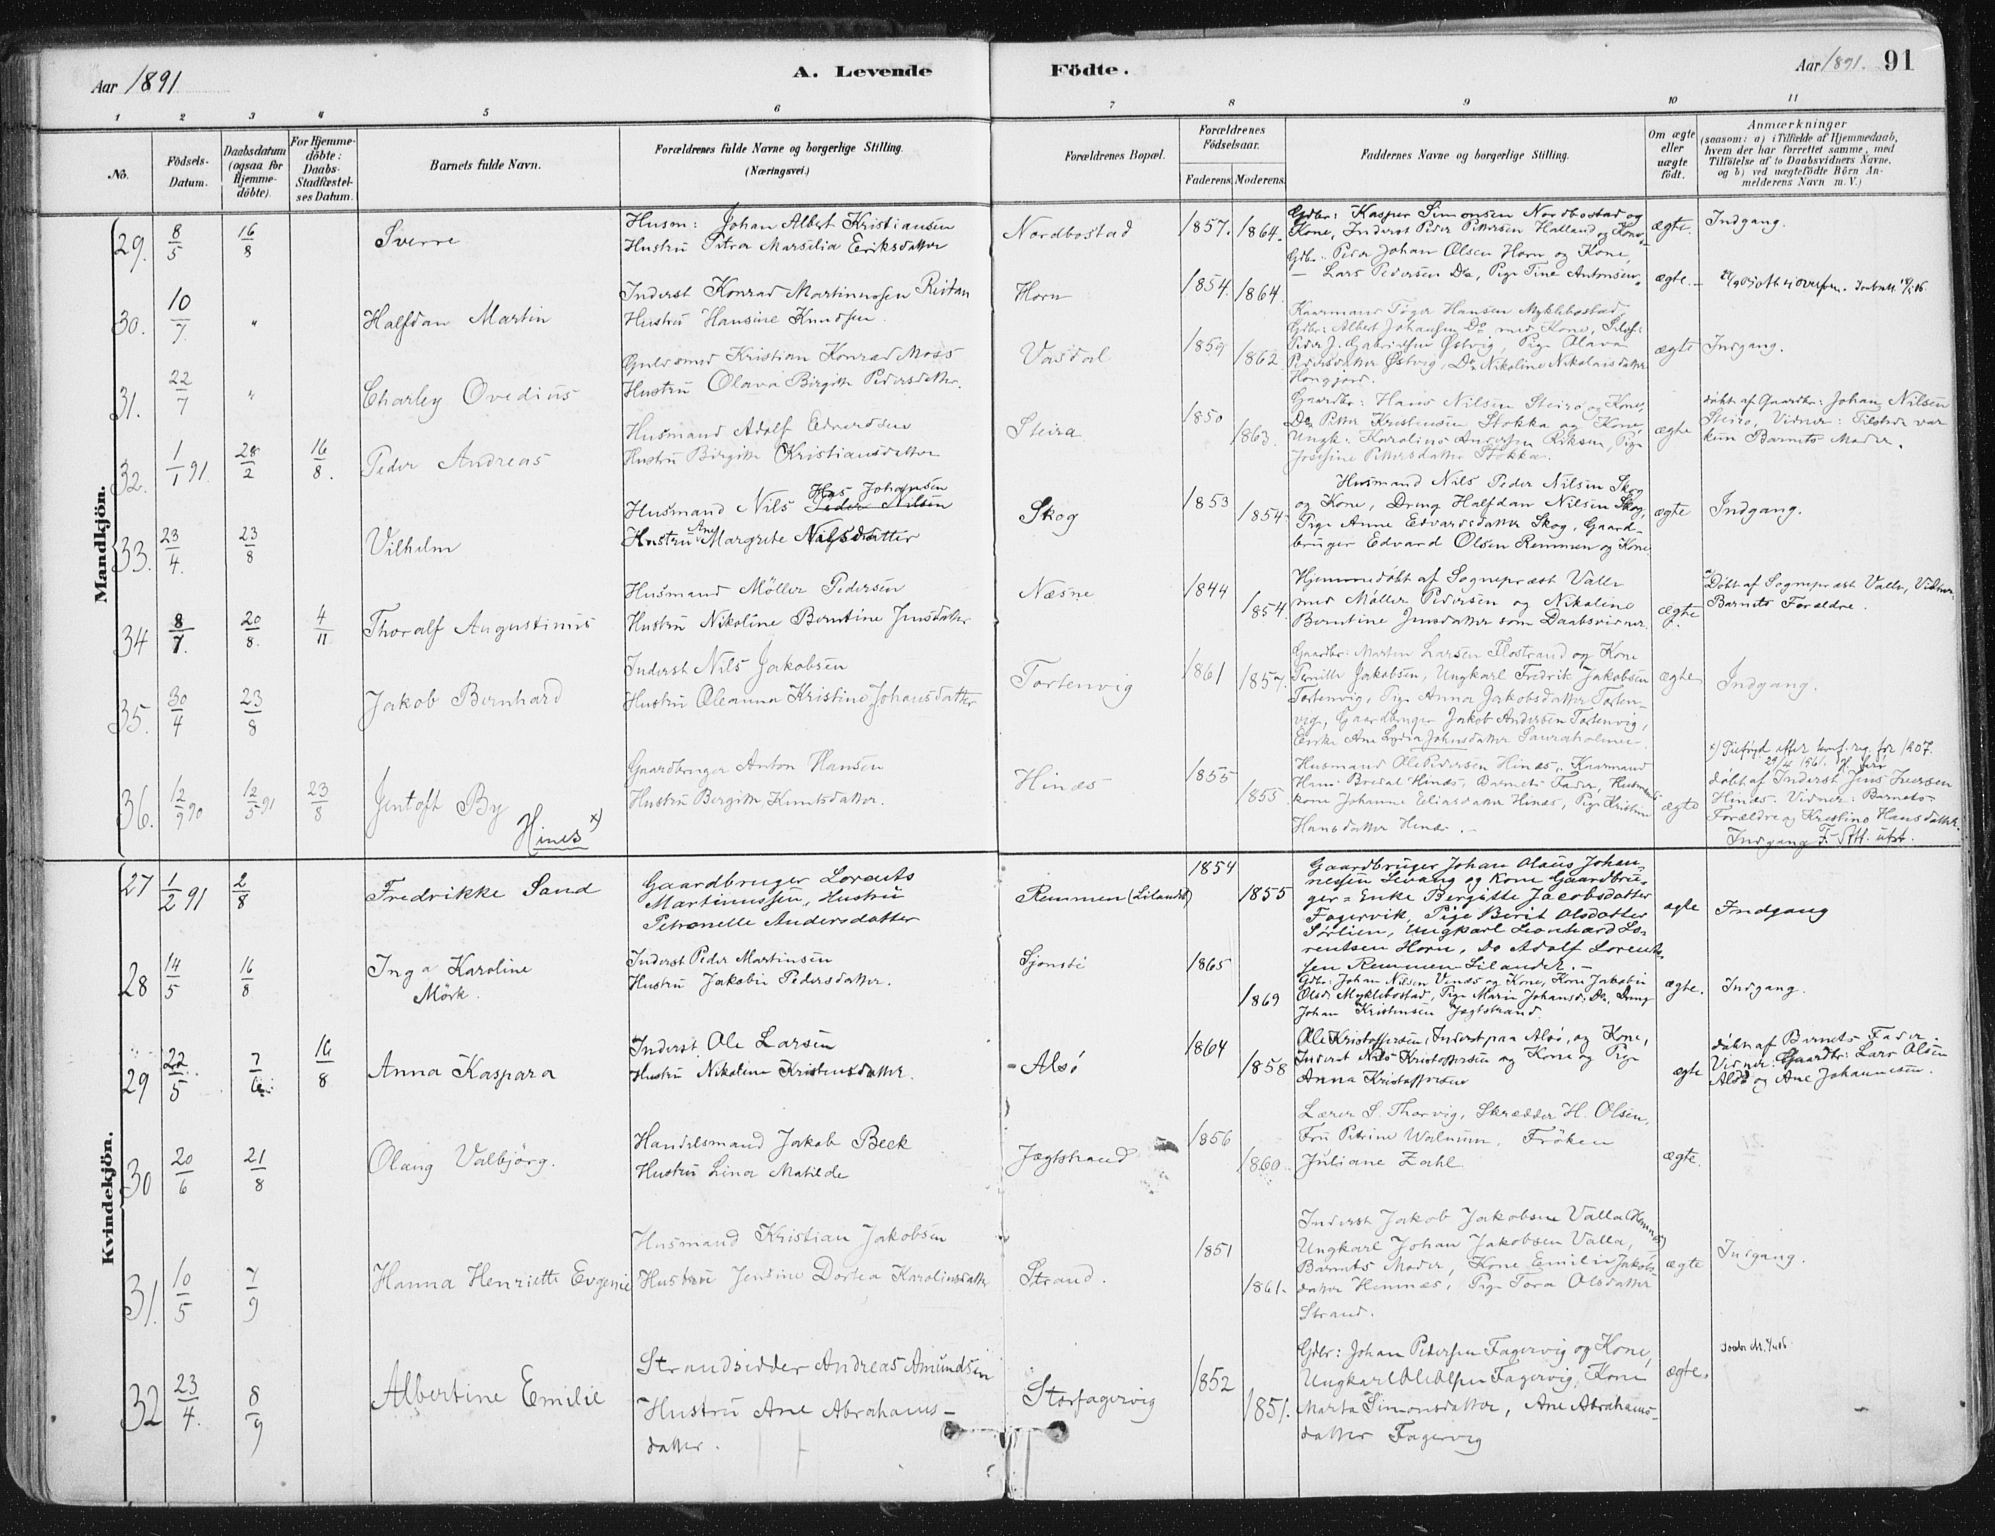 Aar 1891
A. Levende
Födte.
Aar 1891. 91
1 2 3 4 5 6 7 8 9 10 11
No.
Födsels-Datum.
Daabsdatum (ogsaa for Hjemme-döbte).
For Hjemme-döbte: Daabs-Stadfæstel-ses Datum.
Barnets fulde Navn.
Forældrenes fulde Navne og borgerlige Stilling. (Næringsvei.)
Forældrenes Bopæl.
Forældrenes Födselsaar.
Faderens. Moderens.
Faddernes Navne og borgerlige Stilling.
Om ægte eller uægte födt.
Anmærkninger
(saasom: a) i Tilfælde af Hjemmedaab, hvem der har forrettet samme, med Tilföielse af to Daabsvidners Navne, og b) ved uægtefödte Börn An-melderens Navn m. V.)
Mandkjön.
29. 8/5 16/8 Sverre
Husm: Johan Albert Kristiansen
Hustru Petra Marselia Eriksdatter
Nordbostad 1857. 1864.
Gdbr: Kasper Simonsen Nordbostad og
Kone, Inderst Peder Pettersen Halland og Kone
ægte. Indgang.
30. 10/7 " Halfdan Martin
Inderst Konrad Martinussen Ristan
Hustru Hansine Knudsen.
Horn 1854. 1864.
Gdbr: Peder Johan Olsen Horn og Kone,
Lars Pedersen Do, Pige Tine Antonsen
ægte.
31. 22/7 " Charley Ovedius
Guldsmed Kristian Konrad Moss
Hustru Olava Birgitte Pedersdatter.
Vasdal 1859 1862
Kaarmand Töger Hansen Myklebostad,
Gdbr: Albert Johansen Do med Kone,
Peder J. Gabrielsen Østvig, Pige Olava
Pedersdatter Østvig, Do Nikoline Nikolaisdatter
Hongjord.
ægte Indgang.
32. 1/1 91 28/2 16/8. Peder Andreas
Husmand Adolf Edvardsen
Hustru Birgitte Kristiansdatter
Steira 1850 1863.
Gaardbr: Hans Nilsen Steirø og Kone,
Do Petter Kristensen Stokka og Kone,
Ungk: Karolius Andersen Riksen, Pige
Josefine Pettersdatter Stokka.
ægte
döbt af Gaardbr: Johan Nilsen
Steirø, Vidner: Tilstede var
kun Barnets Moder.
33. 23/4. 23/8 Vilhelm
Husmand Nils Peder Nilsen Hans Johansen
Hustru Ane Margrete Nilsdatter
Skog 1853 1854.
Husmand Nils Peder Nilsen Skog
og Kone, Dreng Halfdan Nilsen Skog,
Pige Anne Edvardsdatter Skog, Gaard-
bruger Edvard Olsen Remmen og Kone
ægte Indgang.
34 8/7. 20/8. 4/11 Thoralf Augustinius
Husmand Möller Pedersen
Hustru Nikoline Berntine Jensdatter
Næsne 1844 1854.
Hjemmedöbt af Sognepræst Valle
med Møller Pedersen og Nikoline
Berntine Jensdatter som Daabsvidner.
ægte.
Döbt af Sognepræst Valle, Vidner
Barnets Forældre.
35. 30/4 23/8 Jakob Bernhard
Inderst Nils Jakobsen
Hustru Oleanna Kristine Johansdatter
Tortenvig 1861 1857.
Gaardbr: Marten Larsen Flostrand og Kone
Pernille Jakobsen, Ungkarl Fredrik Jakobsen
Tortenvig, Pige Anna Jakobsdatter Torten-
vig, Gaardbruger Jakob Andersen Tortenvig,
Enke Ane Lydia Johnsdatter
ægte Indgang.
36. 12/9 90 12/5 91 23/8 Jentoft By Hines x)
Gaardbruger Anton Hansen
Hustru Bergitte Knutsdatter.
Hinæs 1855 1855
Husmand Ole Pedersen Hinæs, Kaarmand
Hans Bredal Hinæs, Barnets Fader, Husmands-
kone Johanne Eliasdatter Hinæs, Pige Kristine
Hansdatter Hinæs.
ægte
x) Tilføyd efter
döbt af Inderst Jens Iversen
Hinæs. Vidner: Barnets
Forældre og Kristine Hansdatter.
Indgang F. Att. utst.
Kvindekjön.
27 1/2 91 2/8 Fredrikke Sand
Gaardbruger Lorents
Martinussen, Hustru
Petronelle Andersdatter
Remmen (Lilandet) 1854 1855
Gaardbruger Johan Olaus Johan-
nessen Levang og Kone Gaardbru-
ger = Enke Bergitte Jacobsdatter
Fagervik, Pige Berit Olsdatter
Sørlien, Ungkarl Leonhard Lo-
rentsen Horn, Do Adolf Lorents-
sen Remmen Lilandet.
ægte Indgang
28 14/5 16/8 Inga Karoline
Mörk.
Inderst Peder Martinsen
Hustru Jakobie Pedersdatter.
Sjonsbö 1865 1869
Gdbr: Johan Nilsen Vinæs og Kone, Kone Jakobie
Olsd. Myklebostad, Pige Marie Johansd. Do, Dreng
Johan Kristensen Jægtstrand.
ægte. Indgang.
29 22/5 7/6. 16/8 Anna Kaspara
Inderst Ole Larsen
Hustru Nikoline Kristensdatter.
Alsö 1864 1858
Ole Kristoffersen, Inderst paa Alsö, og Kone,
Inderst Nils Kristoffersen og Kone og Pige
Anna Kristoffersen
ægte
döbt af Barnets Fader.
Vidner: Gaardbr: Lars Olsen
Alsö og Ane Johannesen.
30 20/6 21/8 Olaug Valbjörg.
Handelsmand Jakob Beck
Hustru Lina Matilde
Jægtstrand 1856 1860
Lærer S. Thorvig, Skrædder H. Olsen,
Fru Petrine Walnum, Fröken
Juliane Zahl
ægte.
31. 10/5 7/9 Hanna Henriette Evgenie
Husmand Kristian Jakobsen
Hustru Jensine Dortea Karolinsdatter
Strand. 1851 1861.
Inderst Jakob Jakobsen Valla (Hemnæs)
Ungkarl Johan Jakobsen Valla,
Barnets Moder, Kone Emilie Jakobs-
datter Hemnæs, Pige Tora Olsdatter
Strand.
ægte Indgang.
32 23/4. 8/9 Albertine Emilie
Strandsidder Andreas Amundsen
Hustru Ane Abrahams-
datter.
Storfagervig 1852 1851.
Gdbr: Johan Pedersen Fagervig og Kone,
Ungkarl Ole Olsen Fagervig, Kone
Marta Simonsdatter, Ane Abrahams-
datter Fagervig
ægte.